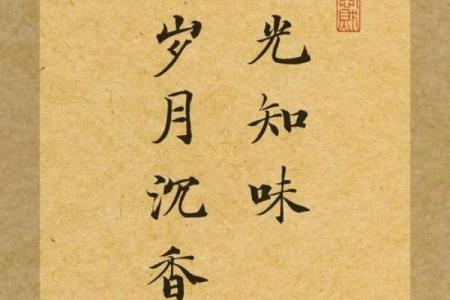 光知味
岁月沉香